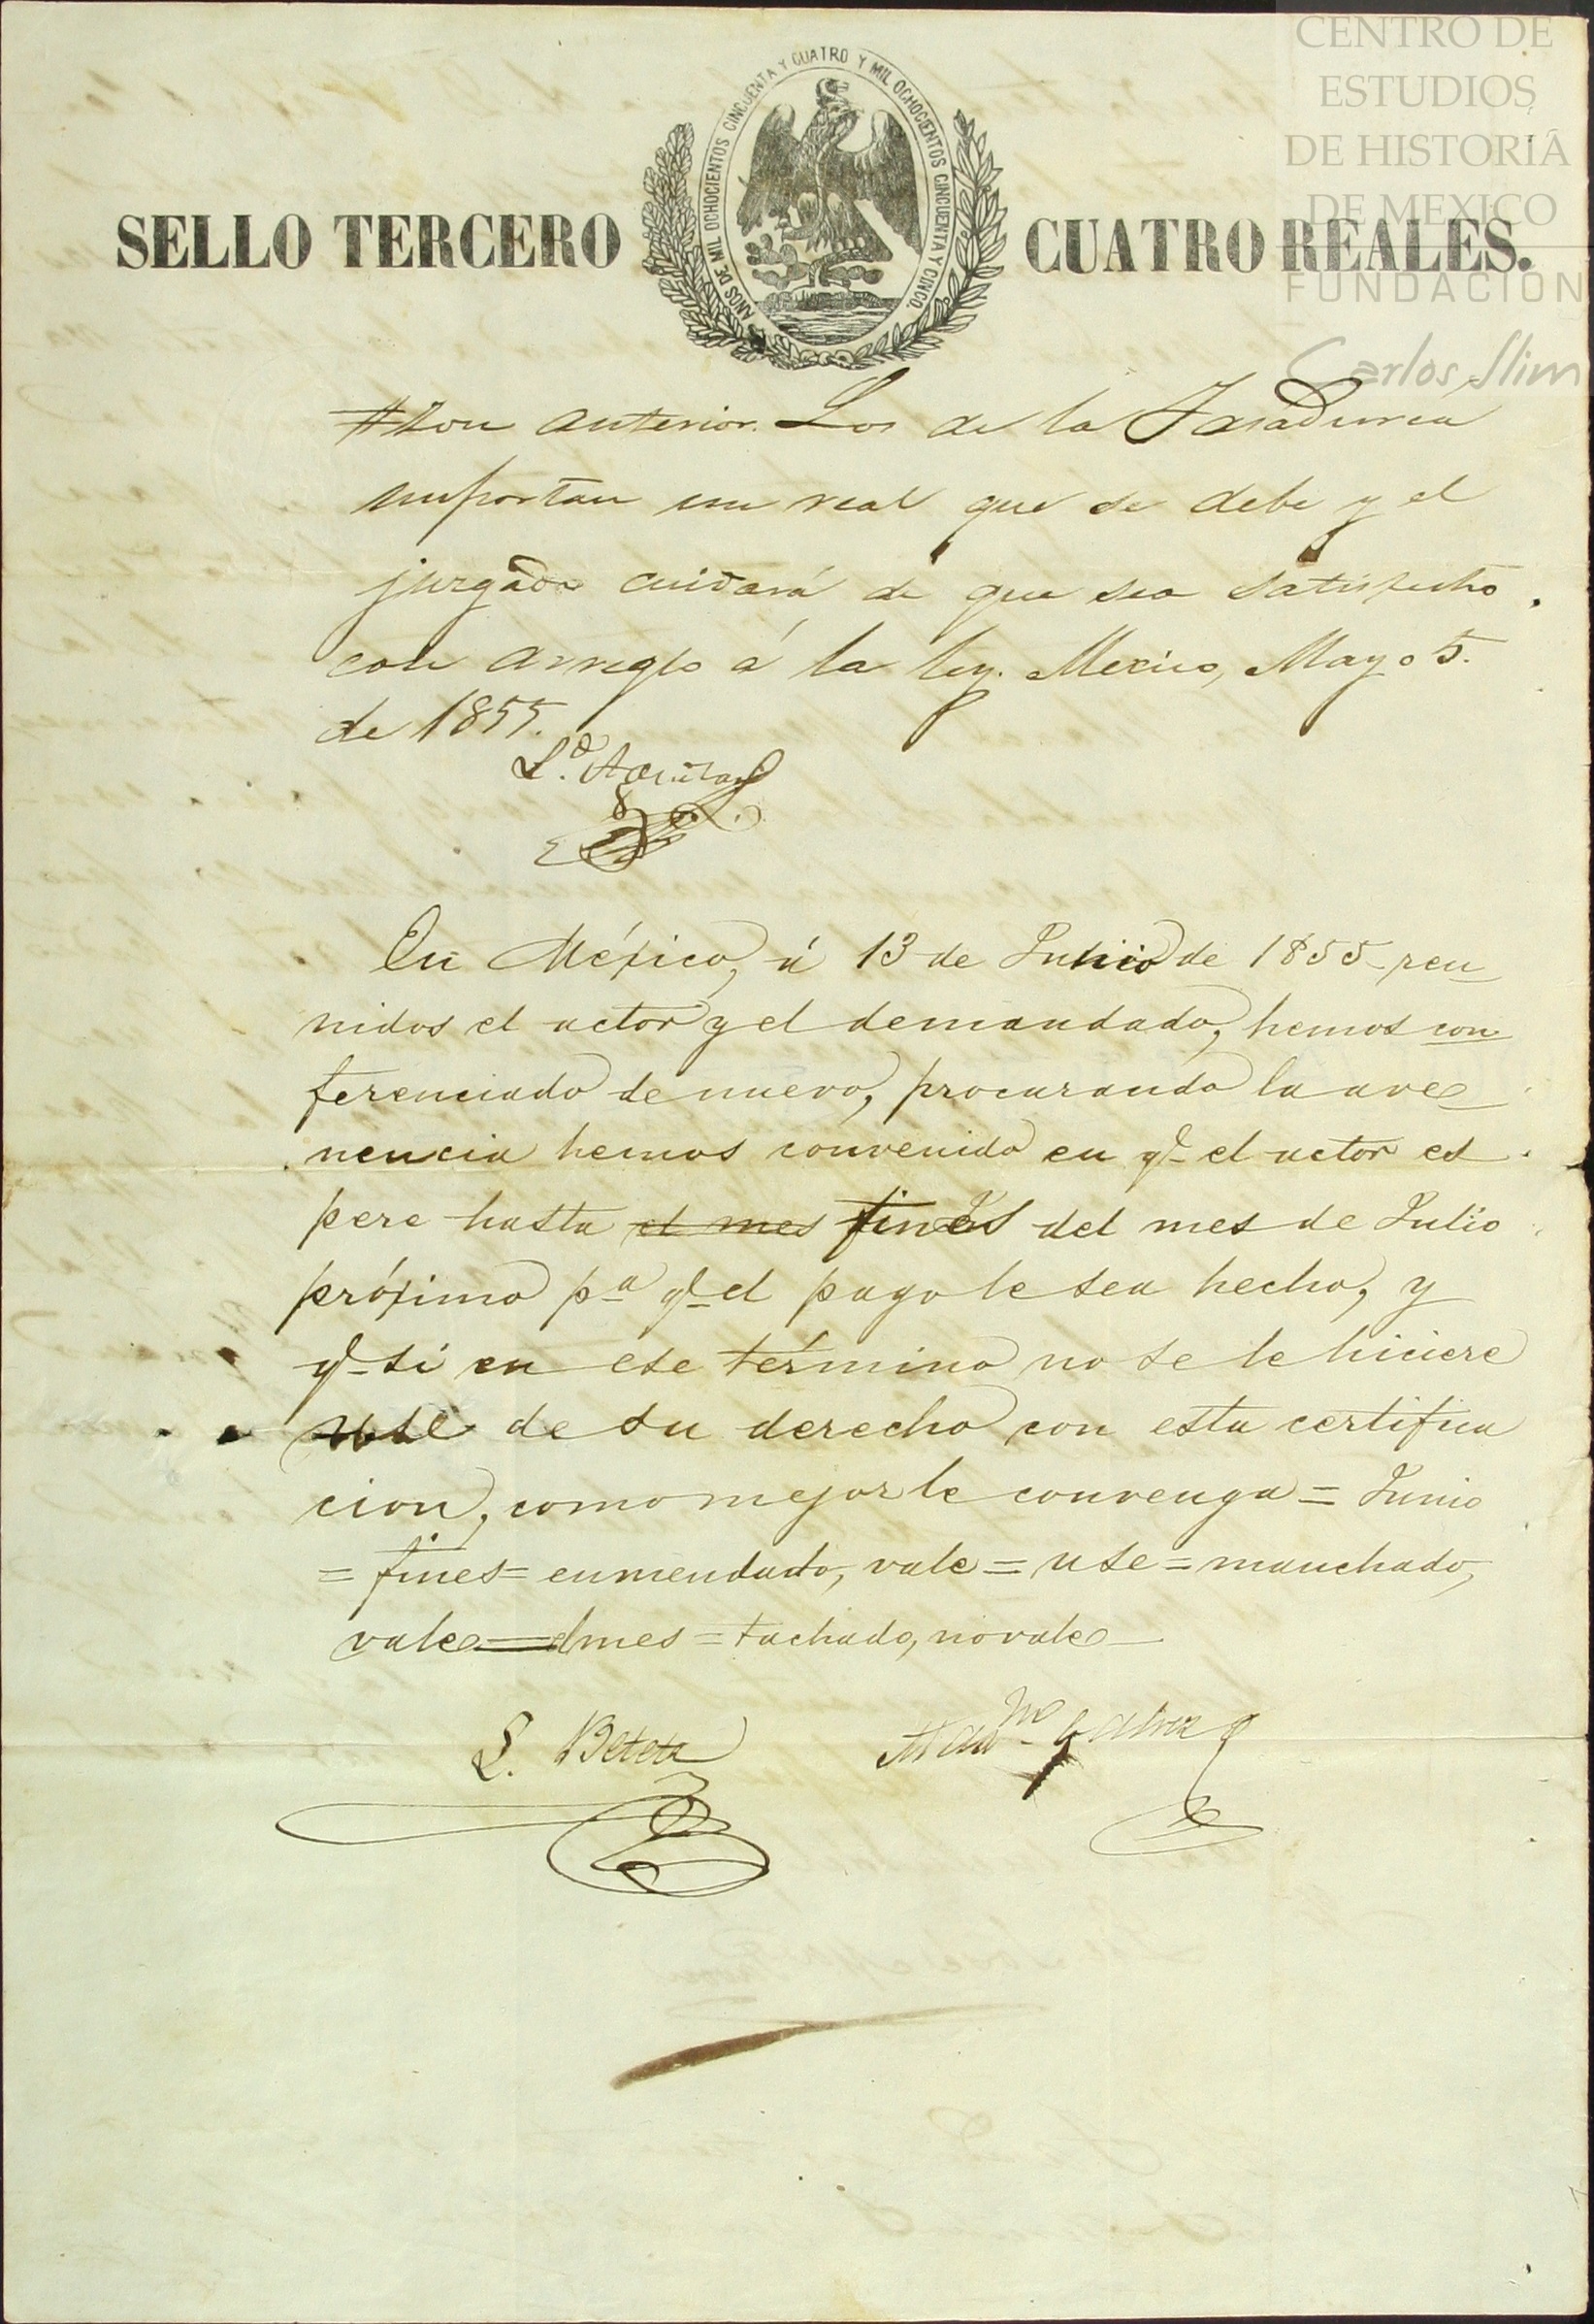 CENTRO DE
ESTUDIOS
DE HISTORIA
DE MEXICO
FUNDACION
Carlos Slim
AÑOS DE MIL OCHOCIENTOS CINCUENTA Y CUATRO Y MIL OCHOCIENTOS CINCUENTA Y CINCO.
SELLO TERCERO CUATRO REALES.
anterior. Los de la Tasaduria
importan un real que se debe y el
juzgado cuidará de que sea satisfecho
con arreglo á la ley. Mexico, Mayo 5.
de 1855.
En México, á 13 de Junio de 1855 reu
nidos el actor y el demandado, hemos con
ferenciado de nuevo, procurando la ave
nencia hemos convenido en q.e el actor es
pere hasta el mes fines del mes de Julio
próximo p.a q.e el pago le sea hecho, y
q.e si en ese término no se le hiciere
use de su derecho con esta certifica
cion, como mejor le convenga = Junio
= fines = enmendado, vale = use = manchado,
vale = el mes = tachado, no vale
L. Beteta
Galvez